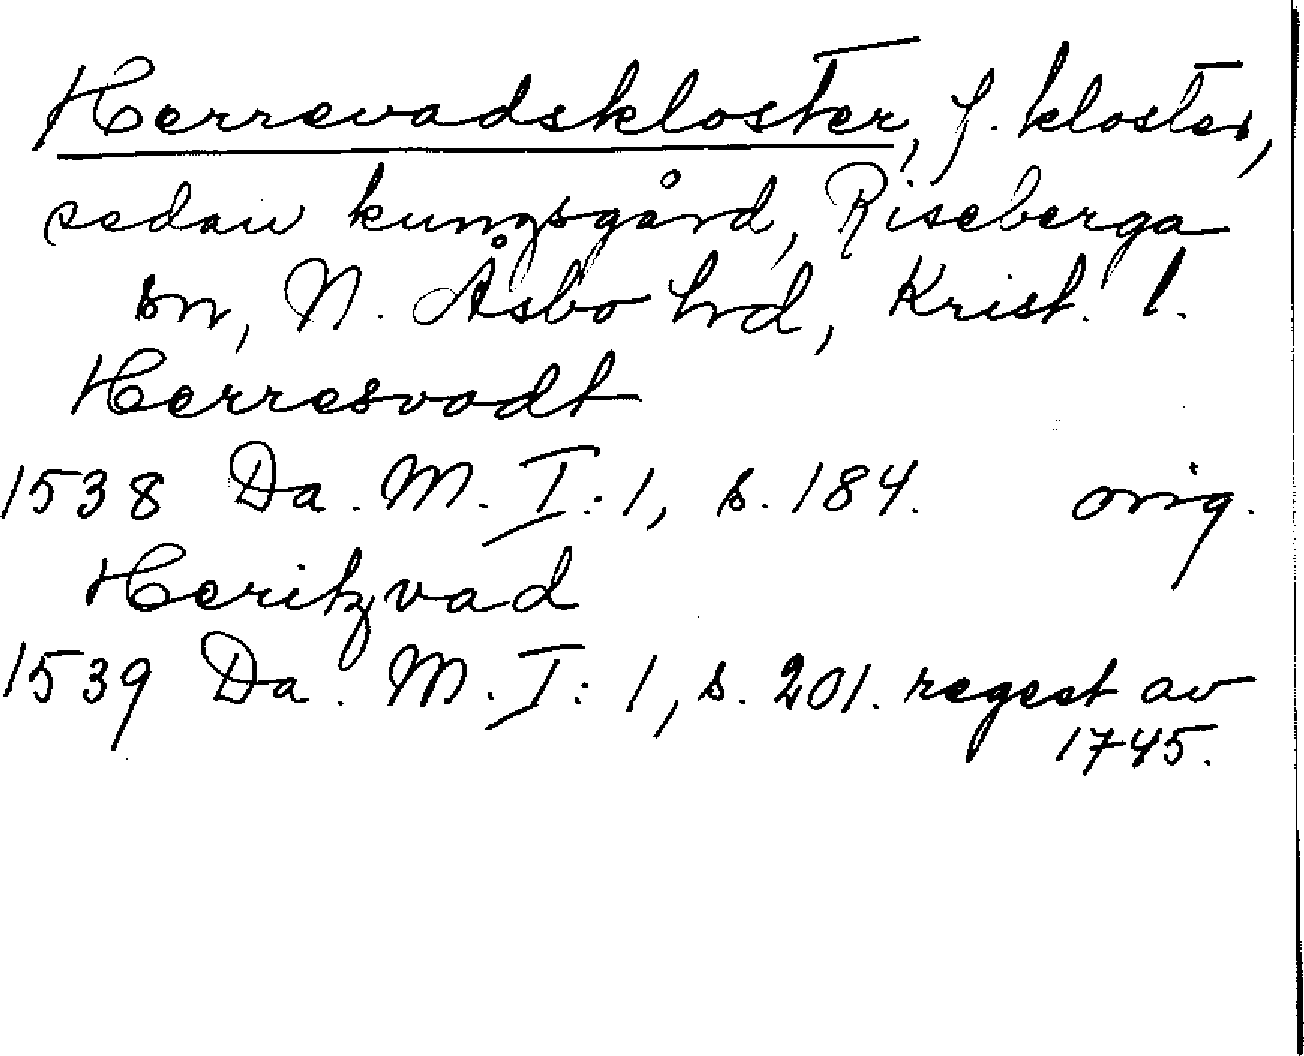 Herrevadskloster, f. kloster,
sedan kungsgård, Riseberga
sn, N. Åsbo hd, Krist. l.
Herresvadt
1538 Da. M. I:1, s. 184. orig.
Heritzvad
1539 Da. M. I:1, s. 201. regest av
1745.